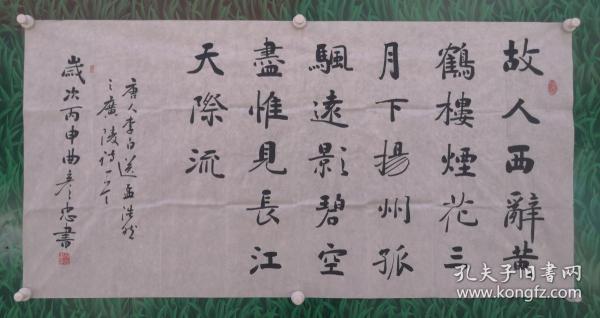 故人西辭黃
鶴樓煙花三
月下揚州孤
颿遠影碧空
盡惟見長江
天際流
唐人李白送孟浩然
之廣陵詩一首
歲次丙申曲彥忠書
孔夫子旧书网
www.kongfz.com